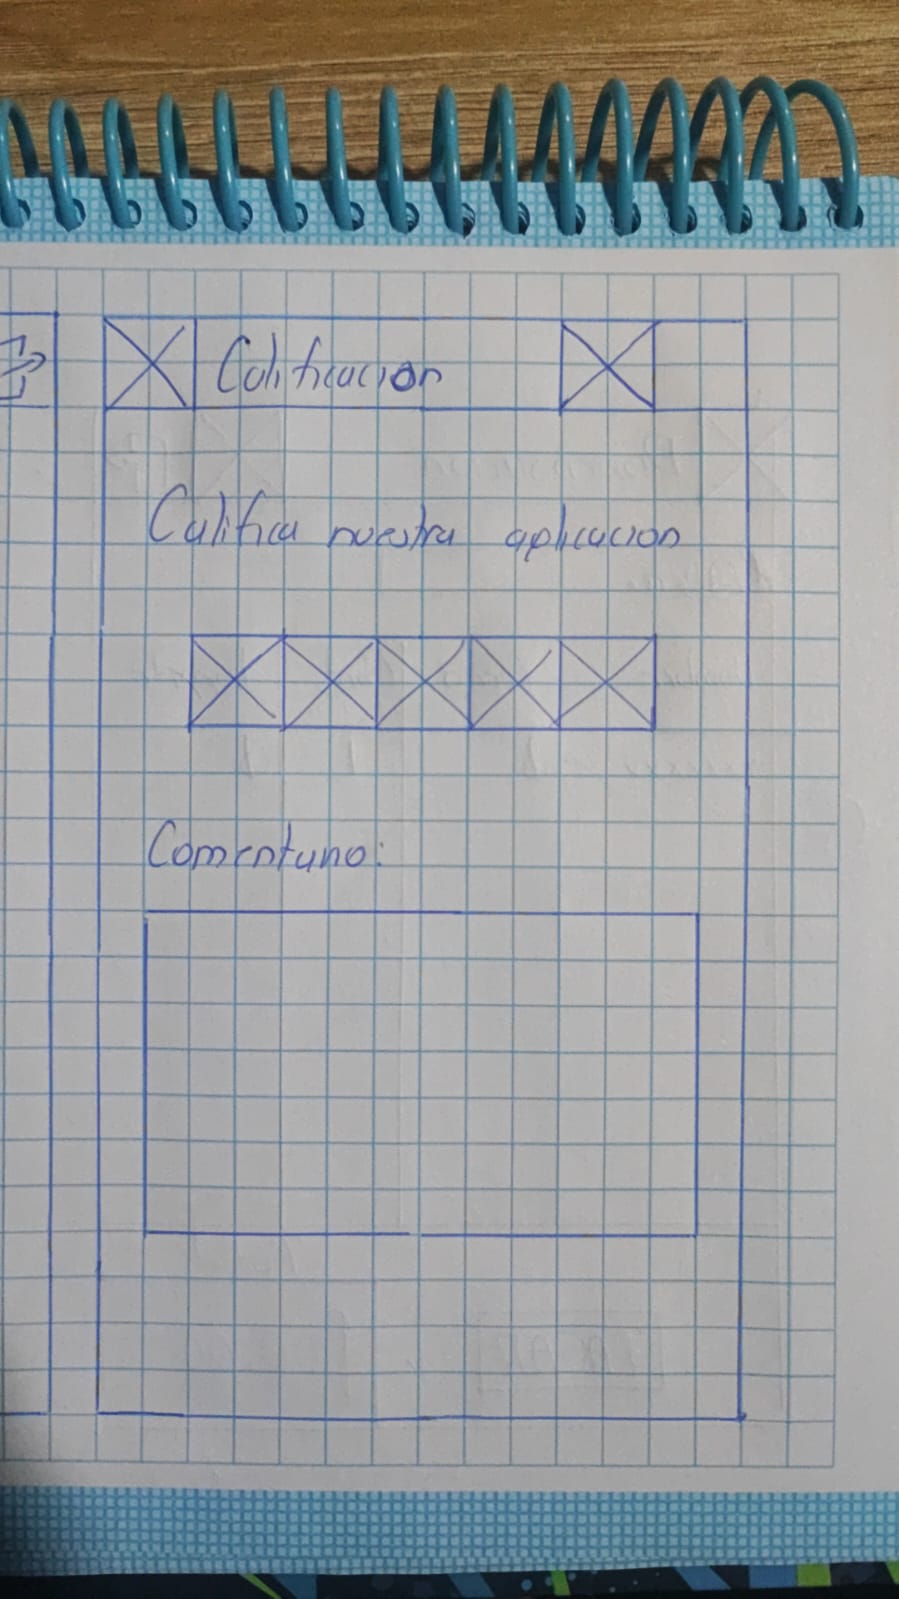 Calificacion
Califica nuestra aplicacion
Comentario: